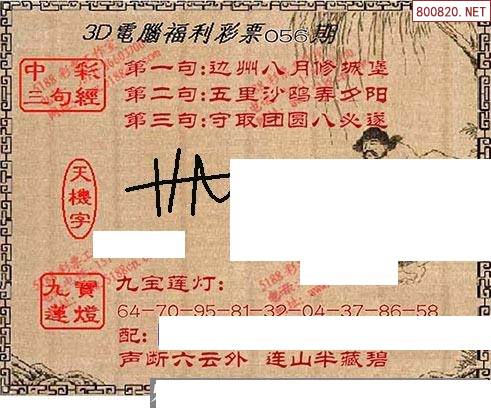 800820.NET
3D電腦福利彩票056期
中彩
三句經
第一句:边州八月修城堡
第二句:五里沙鸥弄夕阳
第三句:守取团圆八必遂
天機字
九寶
蓮燈
九宝莲灯:
64-70-95-81-32-04-37-86-58
配:
声断六云外 连山半藏碧